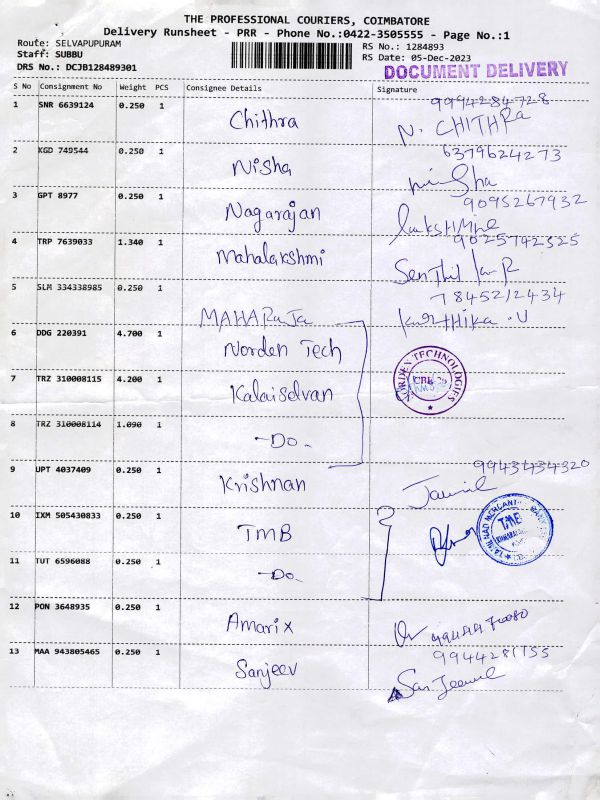 THE PROFESSIONAL COURIERS, COIMBATORE
Delivery Runsheet - PRR - Phone No.:0422-3505555 - Page No.:1
Route: SELVAPUPURAM
Staff: SUBBU
DRS No.: DCJB128489301
RS No.: 1284893
RS Date: 05-Dec-2023
DOCUMENT DELIVERY
S No Consignment No Weight PCS Consignee Details Signature
1 SNR 6639124 0.250 1 Chithra 9994284728
N. CHITHRa
2 KGD 749544 0.250 1 Nisha 6379624273
niSha
3 GPT 8977 0.250 1 Nagarajan 9095267932
4 TRP 7639033 1.340 1 Mahalakshmi
5 SLM 334338985 0.250 1 MAHARaJa 7845212434
Karthika.U
6 DDG 220391 4.700 1 Norden Tech
7 TRZ 310008115 4.200 1 Kalaiselvan
NORDEN TECHNOLOGIES
8 TRZ 310008114 1.090 1 -Do-
9 UPT 4037409 0.250 1 Krishnan 9943434320
10 IXM 505430833 0.250 1 TMB
TMB
11 TUT 6596088 0.250 1 -Do-
12 PON 3648935 0.250 1 Amarix
13 MAA 943805465 0.250 1 Sanjeev 9944281155